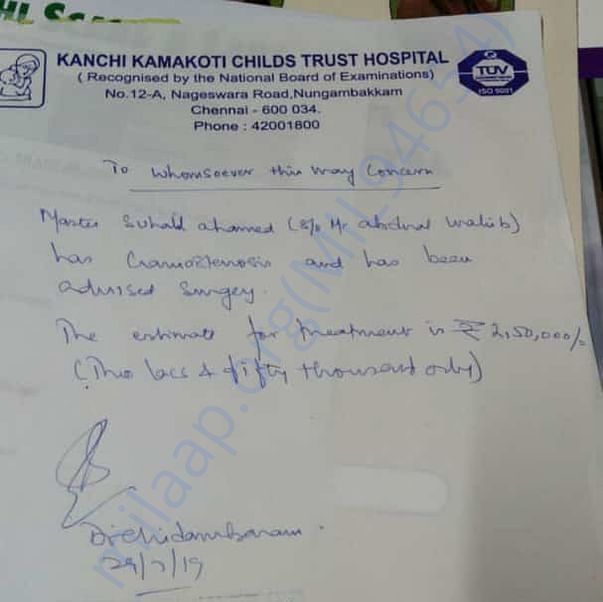 KANCHI KAMAKOTI CHILDS TRUST HOSPITAL
( Recognised by the National Board of Examinations)
No.12-A, Nageswara Road,Nungambakkam
Chennai - 600 034.
Phone : 42001800
TUV
ISO 9001
To whomsoever this may Concern
Master Suhald ahamed (S/o Mr abdul wahib)
has Craniostenosis and has been
advised surgery.
The estimate for treatment is ₹ 2,50,000/-
(Two lacs & fifty thousand only)
Dr Chidambaram.
29/7/19
milaap.org(MIL94654)